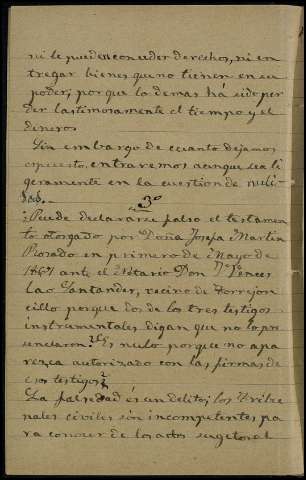 ni le pueden conceder derechos, ni en
tregar bienes que no tienen en su
poder, porque lo demas há sido per
der lastimosamente el tiempo y el
dinero
Sin embargo de cuanto dejamos
expuesto, entraremos aunque sea li
geramente en la cuestion de nuli-
dad.
3º
¿Puede declararse falso el testamen
to otorgado por Doña Josefa Martin
Rosado en primero de Mayo de
ante el Notario Don Wences
lao Santander, vecino de Torrejon
cillo porque dos de los tres testigos
instrumentales digan que no lo pre
senciaron? ¿Es nulo porque no apa
rezca autorizado con las firmas de
esos testigos?
La falsedad és un delito; los Tribu
nales civiles són incompetentes pa
ra conocer de los actos sugetos al